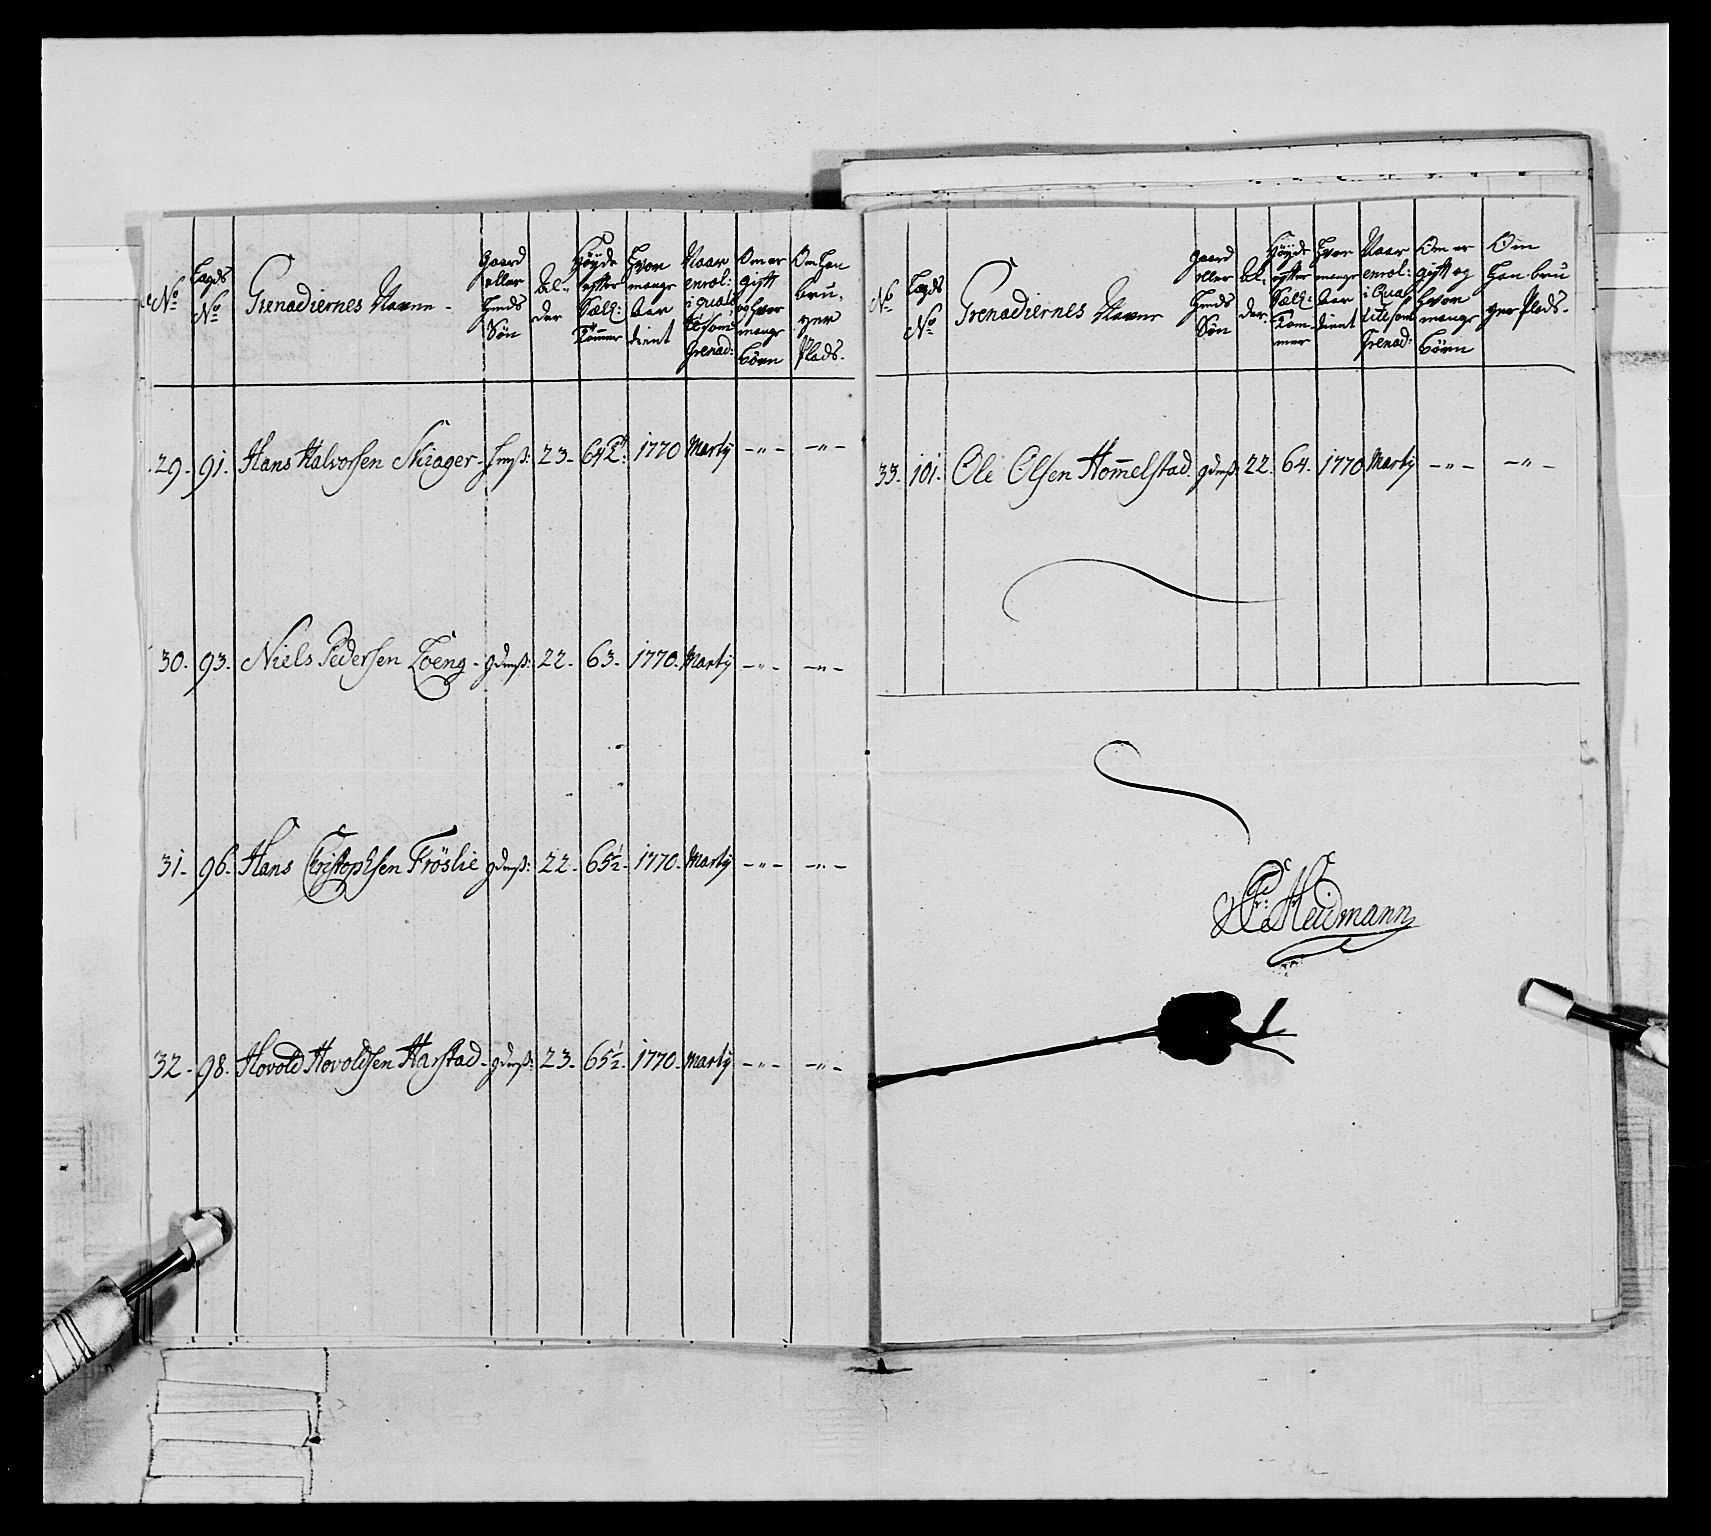 No
Lægds No
Grenadiernes Navne -
Gaard eller Huuds Søn
Al- der
Høyde efter Sæll: Tommer
Hvor mange Aar dient
Naar enrol: i Qualite som Grenad:
Om er gift og hvor mange Börn
Om han bru- ger Plads.
29. 91. Hans Halvorsen Skrager - 23. 1770 Marty -"- -"-
30. 93. Niels Pedersen Loeng - gdmß: 22. 63. 1770. Marty -"- -"-
31. 96. Hans Christophsen Fröslie gdmß: 22. 65½. 1770. Marty -"- -"-
32. 98. Hovold Hovoldsen Harstad - gdmß: 23. 65½. 1770. Marty -"- -"-
No
Lægds No
Grenadiernes Navne
Gaard eller Huuds Søn
Al- der.
Høyde efter Sæll: Tom- mer
Hvor mange Aar dient
Naar enrol: i Qua- lite som Grenad:
Om er gift og hvor mange Börn
Om han bru ger Plads.
33. 101. Ole Olsen Hom̄elstad gdmß: 22. 64. 1770 Marty -"- -"-
Heidmann